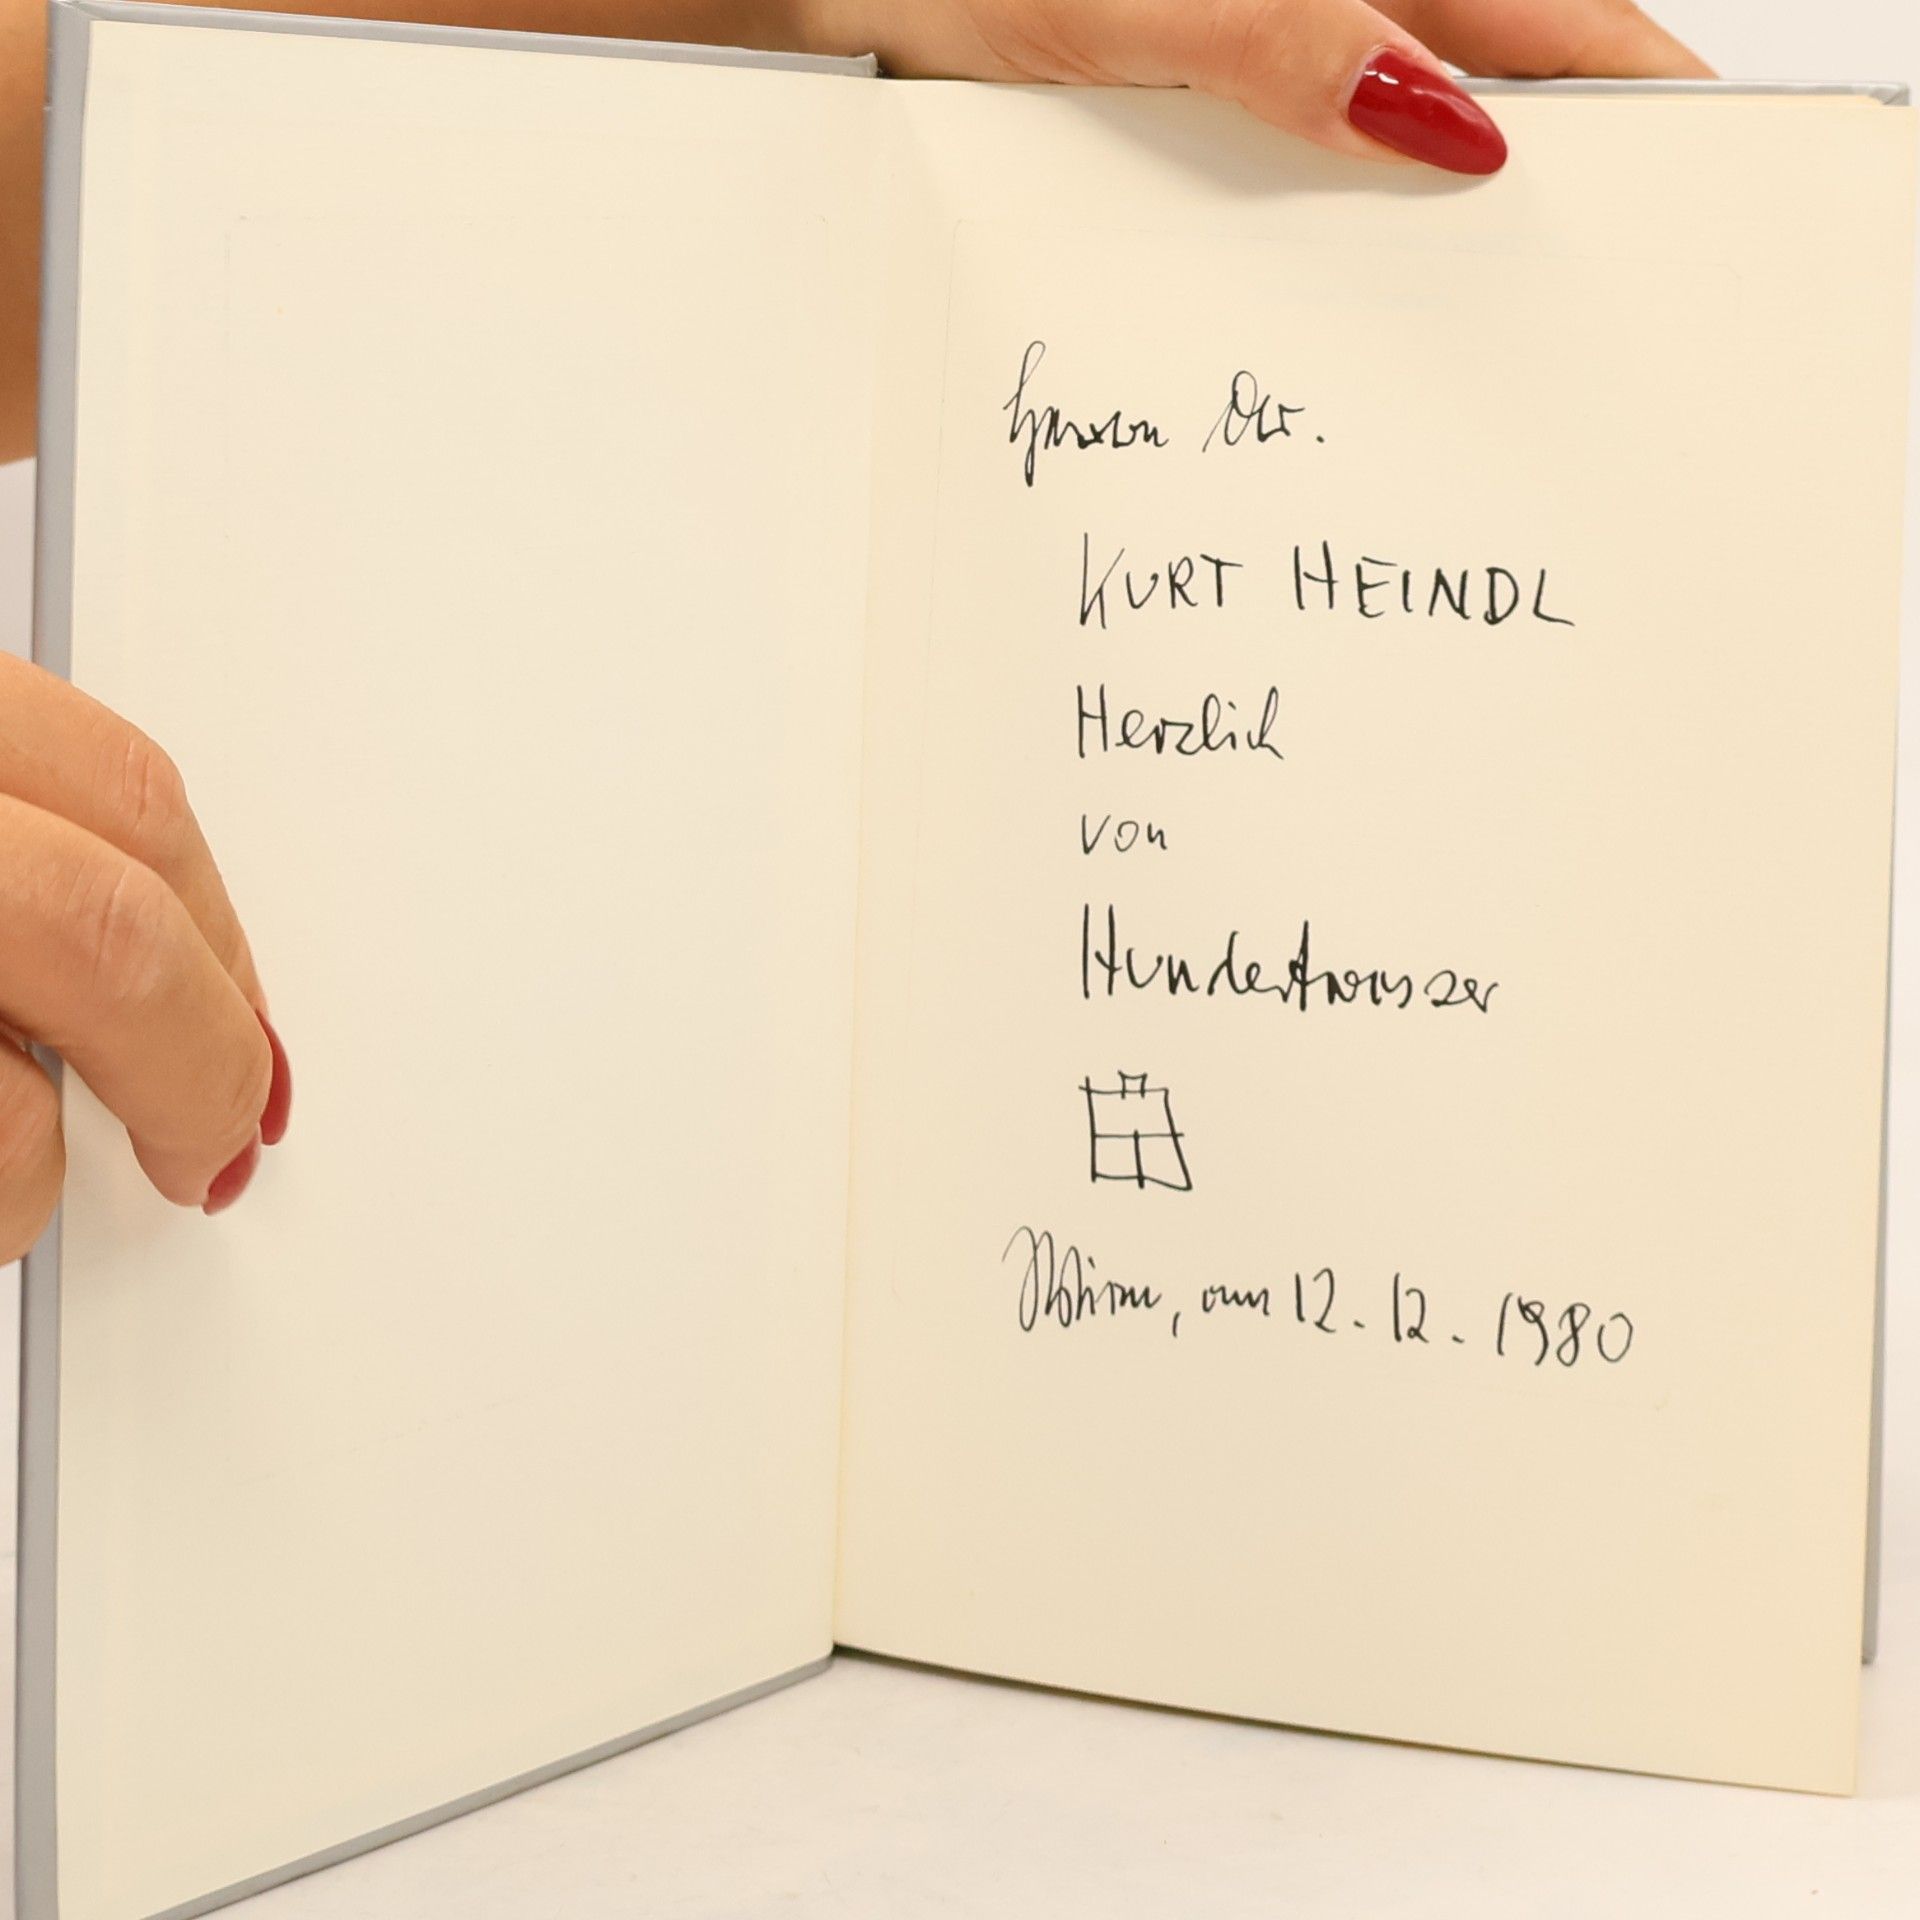 Herrn Dr.
KURT HEINDL
Herzlich
von
Hundertwasser
Wien, am 12.12.1980